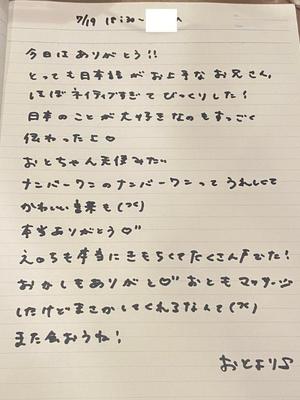 7/19 18:30~
今日はありがとう!!
とっても日本語がお上手なお兄さん。
しほぼネイティブすぎてびっくりした!
日本のことが大好きなのもすっごく
伝わったよ♡
おとちゃん天使みたい
ナンバーワンのナンバーワンってうれしくて
かわいい
本当ありがとう♡
え○ちも本当にきもちくてたくさんでた!
おかしもありがと♡おともマッサージ
したけどまさかしてくれるなんて(笑)
また会おうね!
おとより♪